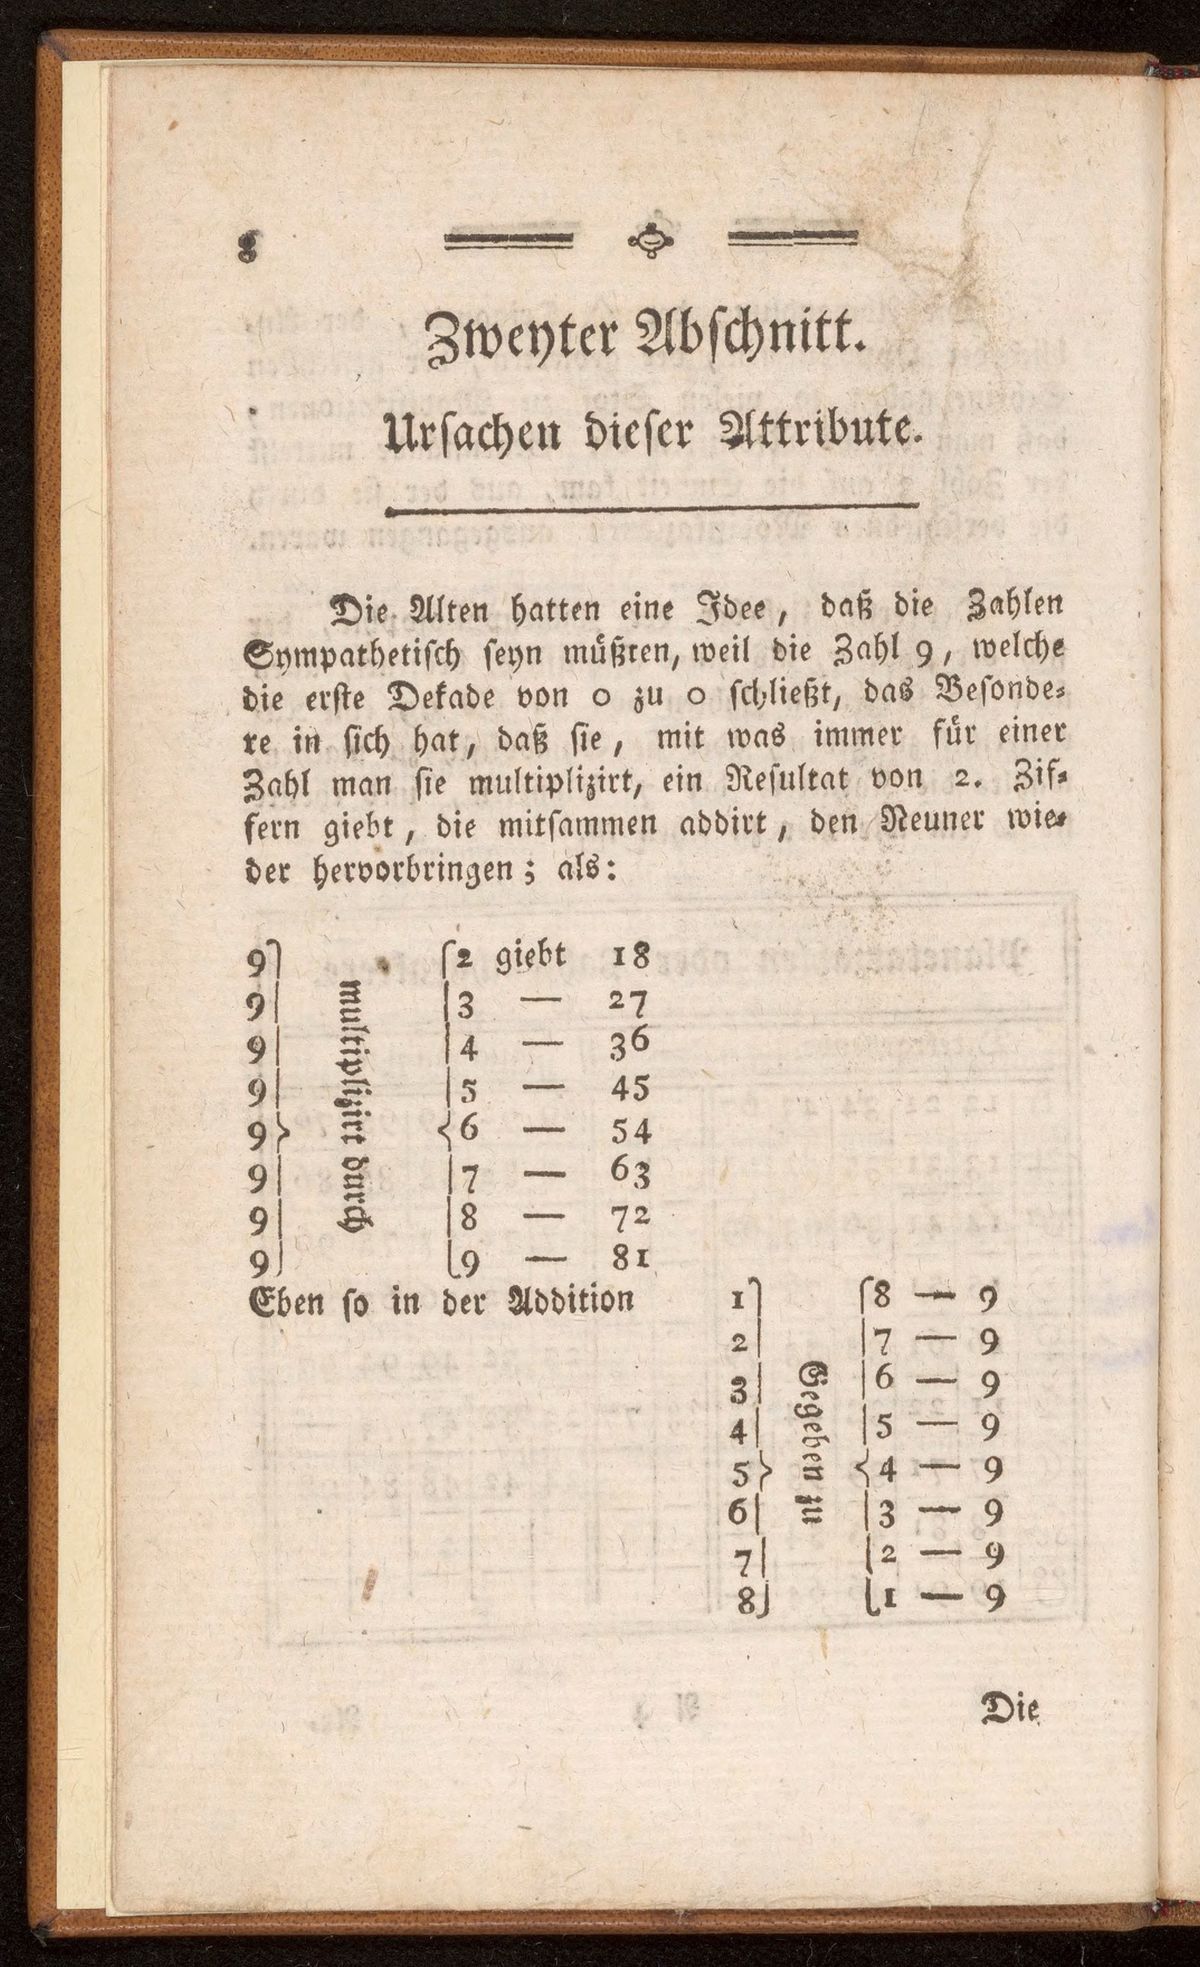 8
Zweyter Abſchnitt.
Urſachen dieſer Attribute.
Die Alten hatten eine Idee, daß die Zahlen
Sympathetiſch ſeyn müßten, weil die Zahl 9, welche
die erſte Dekade von 0 zu 0 ſchließt, das Beſonde⸗
re in ſich hat, daß ſie, mit was immer für einer
Zahl man ſie multiplizirt, ein Reſultat von 2. Zif⸗
fern giebt, die mitſammen addirt, den Neuner wie⸗
der hervorbringen; als:
multiplizirt durch
9 2 giebt 18
9 3 — 27
9 4 — 36
9 5 — 45
9 6 — 54
9 7 — 63
9 8 — 72
9 9 — 81
Eben ſo in der Addition
Gegeben zu
1 8 — 9
2 7 — 9
3 6 — 9
4 5 — 9
5 4 — 9
6 3 — 9
7 2 — 9
8 1 — 9
Die